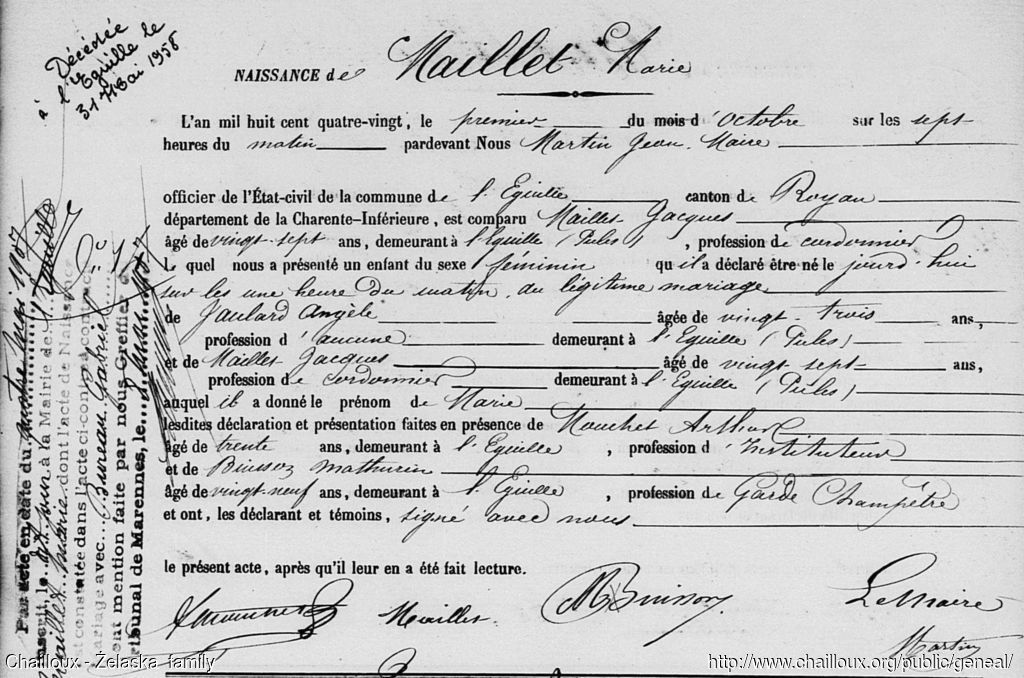 Décédée
à l'Eguille le
31 Mai 1958
NAISSANCE de Maillet Marie
L'an mil huit cent quatre-vingt, le premier du mois d'Octobre sur les sept
heures du matin pardevant Nous Martin Jean Maire
officier de l'État-civil de la commune de l'Eguille canton de Royan
département de la Charente-Inférieure, est comparu Maillet Jacques
âgé de vingt-sept ans, demeurant à l'Eguille, profession de cordonnier
Le quel nous a présenté un enfant du sexe féminin qu'il a déclaré être né le jourd'hui
sur les une heure du matin, du légitime mariage
de Jaulard Angèle âgée de vingt-trois ans,
profession d'aucune demeurant à l'Eguille
et de Maillet Jacques âgé de vingt sept ans,
profession de cordonnier demeurant à l'Eguille
auquel il a donné le prénom de Marie
lesdites déclaration et présentation faites en présence de Mouchet Arthur
âgé de trente ans, demeurant à l'Eguille, profession d'Instituteur
et de Buisson Mathurin
âgé de vingt-neuf ans, demeurant à l'Eguille, profession de Garde Champêtre
et ont, les déclarant et témoins, signé avec nous
le présent acte, après qu'il leur en a été fait lecture.
Maillet Buisson Le Maire
Martin
Par acte en date du quatre Mai 1907
inscrit, le dit jour à la Mairie de l'Eguille
Maillet Marie dont l'acte de Naissance
est constatée dans l'acte ci-contre, a contracté
mariage avec Gabriel
dont mention faite par nous Greffier
tribunal de Marennes, le 1907
Chailloux - Żelaska family
http://www.chailloux.org/public/geneal/